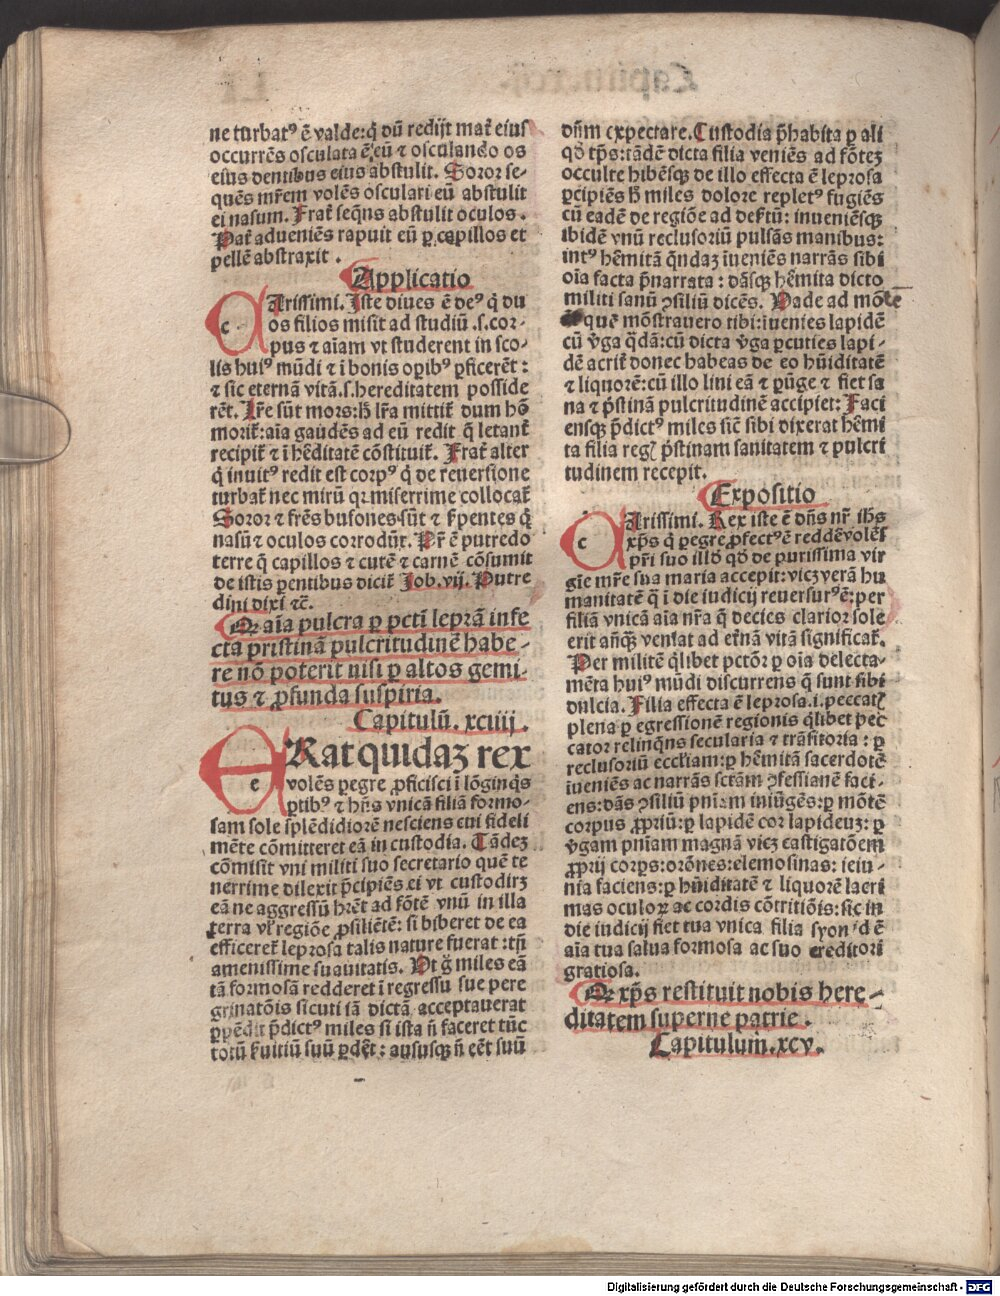 ne turbatꝰ ē valde: q̇ dū redijt mat̄ eius
occurrēs osculata ē eū ⁊ osculando os
eius dentibus eius abstulit. Soror se-
quēs mr̄em volēs osculari eū abstulit
ei nasum. Frat̄ seq̄ns abstulit oculos.
Pat̄ adueniēs rapuit eū ꝑ capillos et
pellē abstraxit.
Applicatio
CArissimi. Iste diues ē deꝰ q̇ du
os filios misit ad studiū .s. cor-
pus ⁊ aīam vt studerent in sco-
lis huiꝰ mūdi ⁊ ī bonis oꝑibꝰ ꝓficerēt:
⁊ sic eternā vitā .s. hereditatem posside
rēt. Lr̄e sūt mors: ꝑ lr̄a mittit̄ dum hō
morit̄: aīa gaudēs ad eū redit q̄ letant̄
recipit̄ ⁊ ī hēditatē cōstituit̄. Frat̄ alter
q̇ inuitꝰ redit est corpꝰ q̇ de reuersione
turbat̄ nec mirū qꝛ miserrime collocat̄
Soror ⁊ fr̄es bufones sūt ⁊ ẜpentes q̇
nasū ⁊ oculos corrodūt. Pr̄ ē putredo
terre q̄ capillos ⁊ cutē ⁊ carnē cōsumit
de istis ẜpentibus dicit̄ Job. vij. Putre
dini dixi ⁊c̄.
Qꝛ aīa pulcra ꝑ pctī leprā infe
cta pristinā pulcritudinē habe-
re nō poterit nisi ꝑ altos gemi-
tus ⁊ ꝓfunda suspiria.
Capitulū. xciiij.
ERat quidaꝫ rex
volēs ꝑegre ꝓficisci ī lōginq̇s
ꝑtibꝰ ⁊ hn̄s vnicā filiā formo-
sam sole splēdidiorē nesciens cui fideli
mēte cōmitteret eā in custodia. Tādeꝫ
cōmisit vni militi suo secretario quē te
nerrime dilexit p̄cipiēs ei vt custodirꝫ
eā ne aggressū hr̄et ad fōtē vnū in illa
terra vl̓ regiōe ꝓsiliētē: si biberet de ea
efficeret̄ leprosa talis nature fuerat: tn̄
amenissime suauitatis. Vt g̊ miles eā
tā formosā redderet ī regressu sue pere
grinatōis sicuti iā dictā acceptauerat
ꝓpēdit p̄dictꝰ miles si ista n̄ faceret tūc
totū ẜuitiū suū ꝑdēt: aususqꝫ n̄ eēt suū
dn̄m expectare. Custodia p̄habita ꝑ ali
qd̄ tp̄s: tādē dicta filia veniēs ad fōteꝫ
occulte bibēsqꝫ de illo effecta ē leprosa
ꝑcipiēs ħ miles dolore repletꝰ fugiēs
cū eadē de regiōe ad deẜtū: inueniēsqꝫ
ibidē vnū reclusoriū pulsās manibus:
intꝰ hēmitā q̄ndaꝫ īueniēs narrās sibi
oīa facta p̄narrata: dāsqꝫ hēmita dicto
militi sanū ꝯsiliū dicēs. Vade ad mōtē
quē mōstrauero tibi: īuenies lapidē
cū v̓ga q̄dā: cū dicta v̓ga ꝑcuties lapi-
dē acrit̄ donec habeas de eo hūiditatē
⁊ liquorē: cū illo lini eā ⁊ ꝑūge ⁊ fiet sa
na ⁊ p̄stinā pulcritudinē accipiet: Faci
ensqꝫ p̄dictꝰ miles sic̄ sibi dixerat hēmi
ta filia regꝭ p̄stinam sanitatem ⁊ pulcri
tudinem recepit.
Expositio
CArissimi. Rex iste ē dn̄s nr̄ ih̄s
xp̄s q̇ ꝑegre ꝓfectꝰ ē reddē volēs
pr̄i suo illd̄ qd̄ de purissima vir
gīe mr̄e sua maria accepit: viꝫ verā hu
manitatē q̇ ī die iudicij reuersurꝰ ē: per
filiā vnicā aīa nr̄a q̄ decies clarior sole
erit añqꝫ veniat ad et̄nā vitā significat̄.
Per militē q̇libet pctōr ꝑ oīa delecta-
mēta huiꝰ mūdi discurrens q̄ sunt sibi
dulcia. Filia effecta ē leprosa .i. peccatꝭ
plena ꝑ egressionē regionis q̇libet pec
cator relinq̄ns secularia ⁊ trāsitoria: ꝑ
reclusoriū eccl̓iam: ꝑ hēmitā sacerdotē
īueniēs ac narrās sctām ꝯfessionē faci-
ens: dās ꝯsiliū pnīam iniūgēs: ꝑ mōtē
corpus ꝓpriū: ꝑ lapidē cor lapideuꝫ: ꝑ
v̓gam pnīam magnā viꝫ castigatōem
ꝓprij corꝑs: orōnes: elemosinas: ieiu-
nia faciens: ꝑ hūiditatē ⁊ liquorē lacri
mas oculoꝝ ac cordis cōtritiōis: sic in
die iudicij fiet tua vnica filia syon id ē
aīa tua salua formosa ac suo creditori
gratiosa.
Qꝛ xp̄s restituit nobis here-
ditatem superne patrie.
Capitulum. xcv.
Digitalisierung gefördert durch die Deutsche Forschungsgemeinschaft - DFG